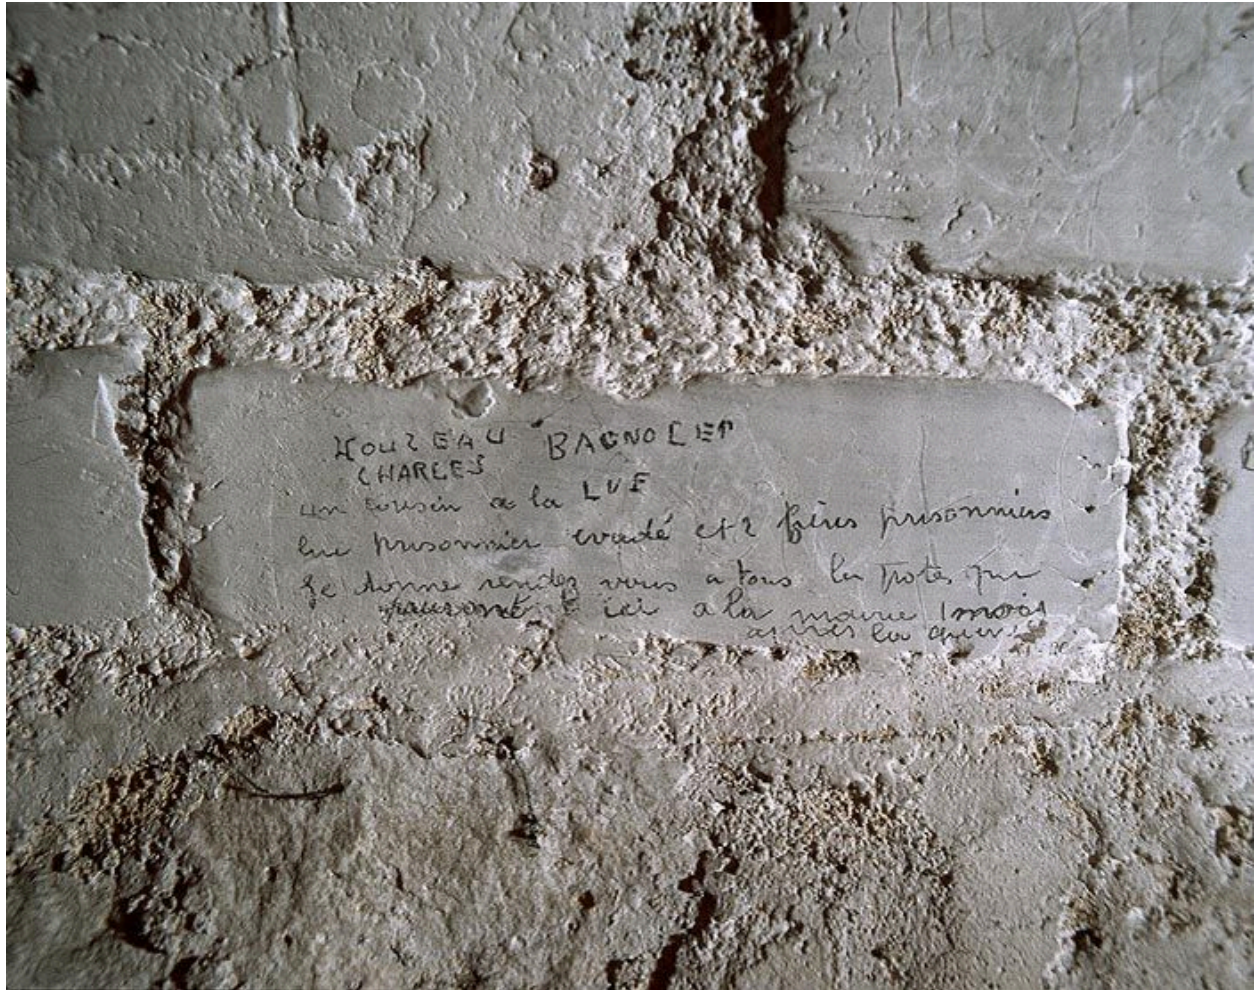 BAGNOLET
CHARLES
un cousin a la LVF
lui prisonnier evadé et 2 frères prisonniers
Je donne rendez vous a tous les potes qui
ici a la mairie 1 mois
apres la guerre